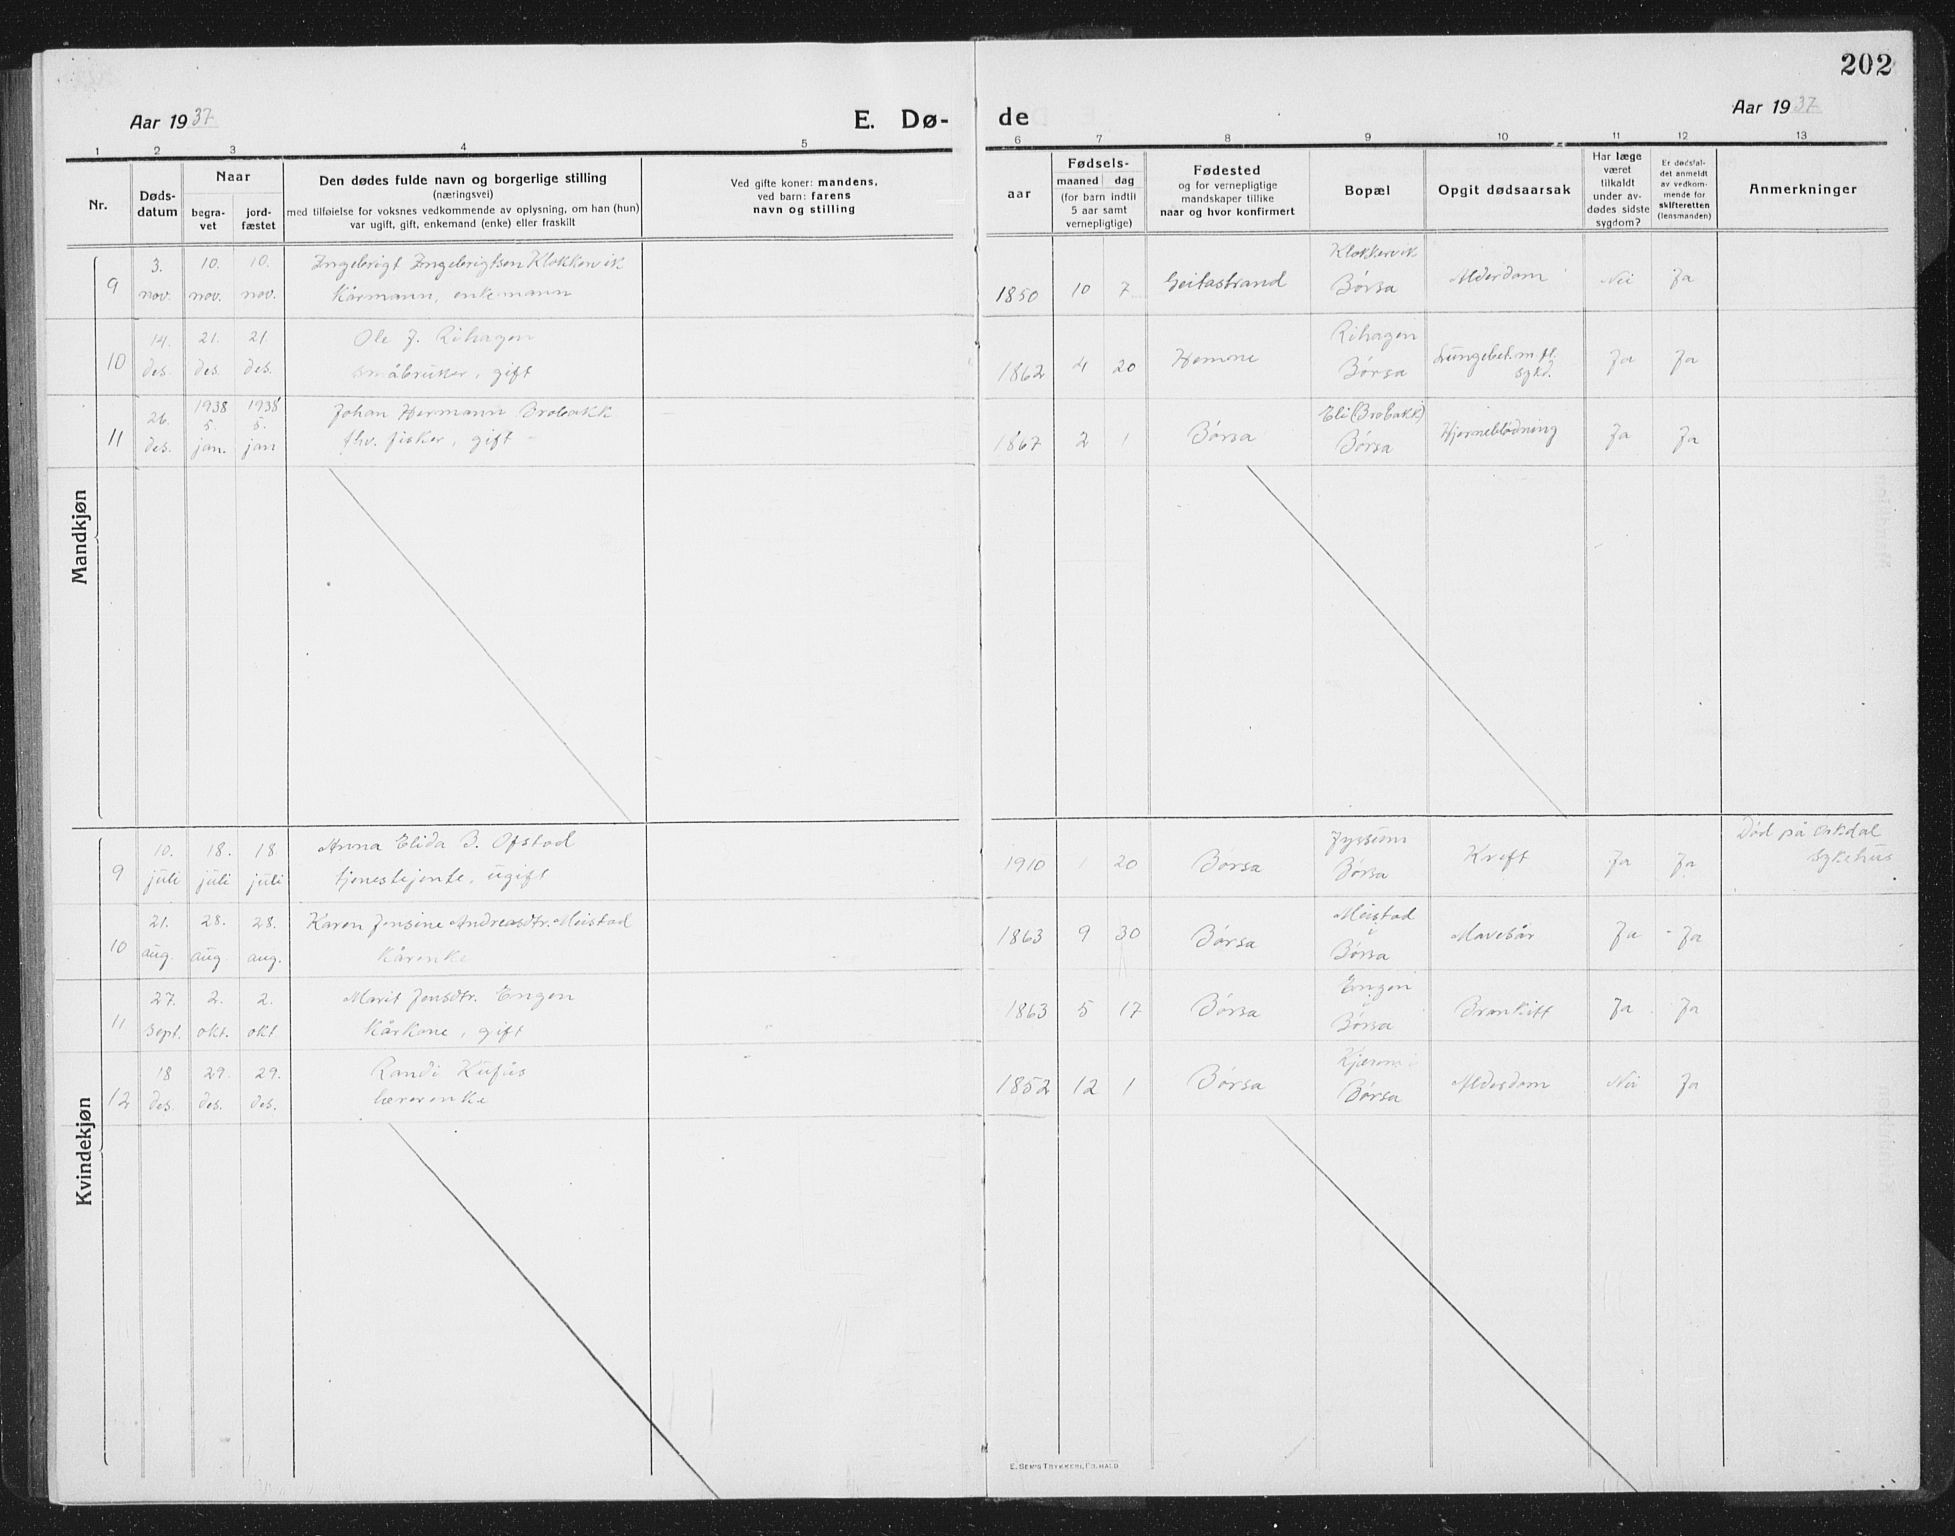 202
Aar 1937
E. Dø-
de
Aar 1937
1 2 3 4 5 6 7 8 9 10 11 12 13
Nr.
Døds-
datum
Naar
begra-
vet
jord-
fæstet
Den dødes fulde navn og borgerlige stilling
(næringsvei)
med tilføielse for voksnes vedkommende av oplysning, om han (hun)
var ugift, gift, enkemand (enke) eller fraskilt
Ved gifte koner: mandens,
ved barn: farens
navn og stilling
aar
Fødsels-
maaned dag
(for barn indtil
5 aar samt
vernepligtige)
Fødested
og for vernepligtige
mandskaper tillike
naar og hvor konfirmert
Bopæl
Opgit dødsaarsak
Har læge
været
tilkaldt
under av-
dødes sidste
sygdom?
Er dødsfal-
det anmeldt
av vedkom-
mende for
skifteretten
(lensmanden)
Anmerkninger
Mandkjøn
3. 10. 10. Ingebrigt Ingebrigtsen Klokkervik Klokkervik
9 nov. nov. nov. Kårmann, enkemann 1850 10 7 Geitastrand Børsa Alderdom Nei Ja
14. 21. 21. Ole J. Rihagen Rihagen
10 des. des. des. småbruker, gift 1862 4 20 Hemne Børsa Lungebet. m. fl. sykd. Ja Ja
26. 1938 5. 1938 5. Johan Hermann Brobakk Eli (Brobakk)
11 des. jan. jan fhv. fisker, gift 1867 2 1 Børsa Børsa Hjerneblødning Ja Ja
Kvindekjøn
10. 18. 18. Anna Elida B. Ofstad Død på Orkdal
9 juli juli juli tjenestejente, ugift 1910 1 20 Børsa Børsa Kreft Ja Ja sykehus
21. 28. 28. Karen Jensine Andreasdtr. Meistad Meistad i
10 aug. aug. aug. Kårenke 1863 9 30 Børsa Børsa Mavesår Ja Ja
27. 2. 2. Marit Jensdtr. Engen Engen i
11 sept. okt. okt Kårkone, gift 1863 5 17 Børsa Børsa Bronkitt Ja Ja
18 29. 29. Randi Kufås
12 des. des. des. lærerenke 1852 12 1 Børsa Børsa Alderdom Nei Ja